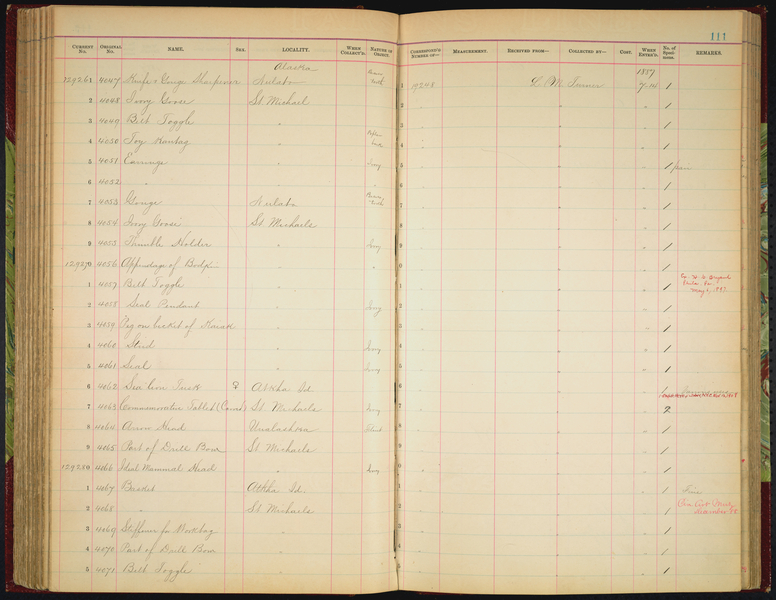 111
CURRENT No. ORIGINAL No. NAME. SEX. LOCALITY. WHEN COLLECT'D. NATURE OF OBJECT. CORRESPOND'G NUMBER OF— MEASUREMENT. RECEIVED FROM— COLLECTED BY— COST. WHEN ENTER'D. No. of Specimens. REMARKS.
Alaska 1887
129261 4047 Knife & Gouge Sharpener Nulato 1 19248 L. M. Turner 7-14 1
2 4048 Ivory Goose St Michael 2 " " " 1
3 4049 Belt Toggle " 3 " " " 1
4 4050 Toy Kantag " 4 " " " 1
5 4051 Earrings " Ivory 5 " " " 1 pair
6 4052 " " " 6 " " " 1
7 4053 Gouge Nulato 7 " " " 1
8 4054 Ivory Goose St Michaels 8 " " " 1
9 4055 Thimble Holder " Ivory 9 " " " 1
129270 4056 Appendage of " " 0 " " " 1
1 4057 Belt Toggle " 1 " " " 1
2 4058 Seal Pendant " Ivory 2 " " " 1
3 4059 Peg on becket of Kaiak " 3 " " " 1
4 4060 Stud " Ivory 4 " " " 1
5 4061 Seal " Ivory 5 " " " 1
6 4062 Sea lion Tusk ♀ Atkha Id. 6 " " " 1
7 4063 Commemorative Tablet (Carved) St Michaels Ivory 7 " " " 2
8 4064 Arrow Head Unalashka 8 " " " 1
9 4065 Part of Drill Bow St Michaels 9 " " " 1
129280 4066 Mammal Head " Ivory 0 " " " 1
1 4067 Basket Atkha Id. 1 " " " 1
2 4068 " St Michaels 2 " " " 1
3 4069 Stiffener for Workbag " 3 " " " 1
4 4070 Part of Drill Bow " 4 " " " 1
5 4071 Belt Toggle " 5 " " " 1